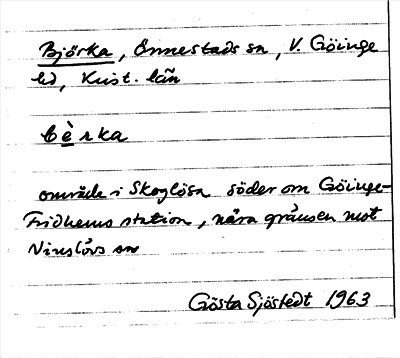 Björka, Önnestads sn, V. Göinge
hd, Krist. län
bè̱rka
område i Skoglösa söder om Göinge-
Fridhems station, nära gränsen mot
Vinslövs sn
Gösta Sjöstedt 1963